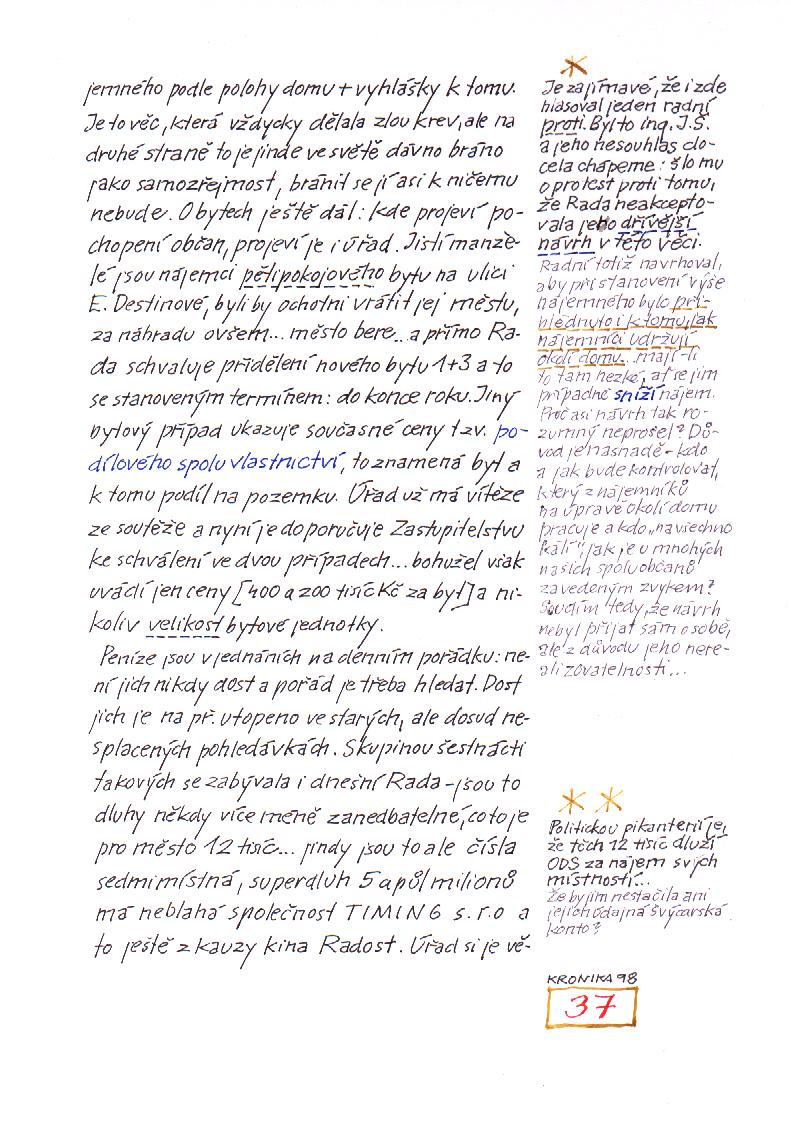 jemného podle polohy domu + vyhlášky k tomu.
Je to věc, která vždycky dělala zlou krev, ale na
druhé straně to je jinde ve světě dávno bráno
jako samozřejmost, bránit se jí asi k ničemu
nebude. O bytech ještě dál: kde projeví po-
chopení občan, projeví je i úřad. Jistí manže-
lé jsou nájemci pětipokojového bytu na ulici
E. Destinové, byli by ochotni vrátit jej městu,
za náhradu ovšem... město bere... a přímo Ra-
da schvaluje přidělení nového bytu 1+3 a to
se stanoveným termínem: do konce roku. Jiný
bytový případ ukazuje současné ceny tzv. po-
dílového spoluvlastnictví, to znamená byt a
k tomu podíl na pozemku. Úřad už má vítěze
ze soutěže a nyní je doporučuje Zastupitelstvu
ke schválení ve dvou případech... bohužel však
uvádí jen ceny [400 a 200 tisíc Kč za byt] a ni-
koliv velikost bytové jednotky.
Peníze jsou v jednáních na denním pořádku: ne-
ní jich nikdy dost a pořád je třeba hledat. Dost
jich je na př. utopeno ve starých, ale dosud ne-
splacených pohledávkách. Skupinou šestnácti
takových se zabývala i dnešní Rada - jsou to
dluhy někdy více méně zanedbatelné, co to je
pro město 12 tisíc... jindy jsou to ale čísla
sedmimístná, superdluh 5 a půl milionů
má neblahá společnost TIMING s.r.o a
to ještě z kauzy kina Radost. Úřad si je vě-
*
Je zajímavé, že i zde
hlasoval jeden radní
proti. Byl to ing. J.Š.
a jeho nesouhlas do-
cela chápeme: šlo mu
o protest proti tomu,
že Rada neakcepto-
vala jeho dřívější
návrh v této věci.
Radní totiž navrhoval,
aby při stanovení výše
nájemného bylo při-
hlédnuto i k tomu, jak
nájemníci udržují
okolí domu... mají-li
to tam hezké, ať se jim
případně sníží nájem.
Proč asi návrh tak ro-
zumný neprošel? Dů-
vod je nasnadě - kdo
a jak bude kontrolovat,
který z nájemníků
na úpravě okolí domu
pracuje a kdo „na všechno
kálí“, jak je u mnohých
našich spoluobčanů
zavedeným zvykem?
Soudím tedy, že návrh
nebyl přijat sám o sobě,
ale z důvodu jeho nere-
alizovatelnosti...
* *
Politickou pikanterií je,
že těch 12 tisíc dluží
ODS za nájem svých
místností...
Že by jim nestačila ani
jejich údajná švýcarská
konta?
KRONIKA 98
37